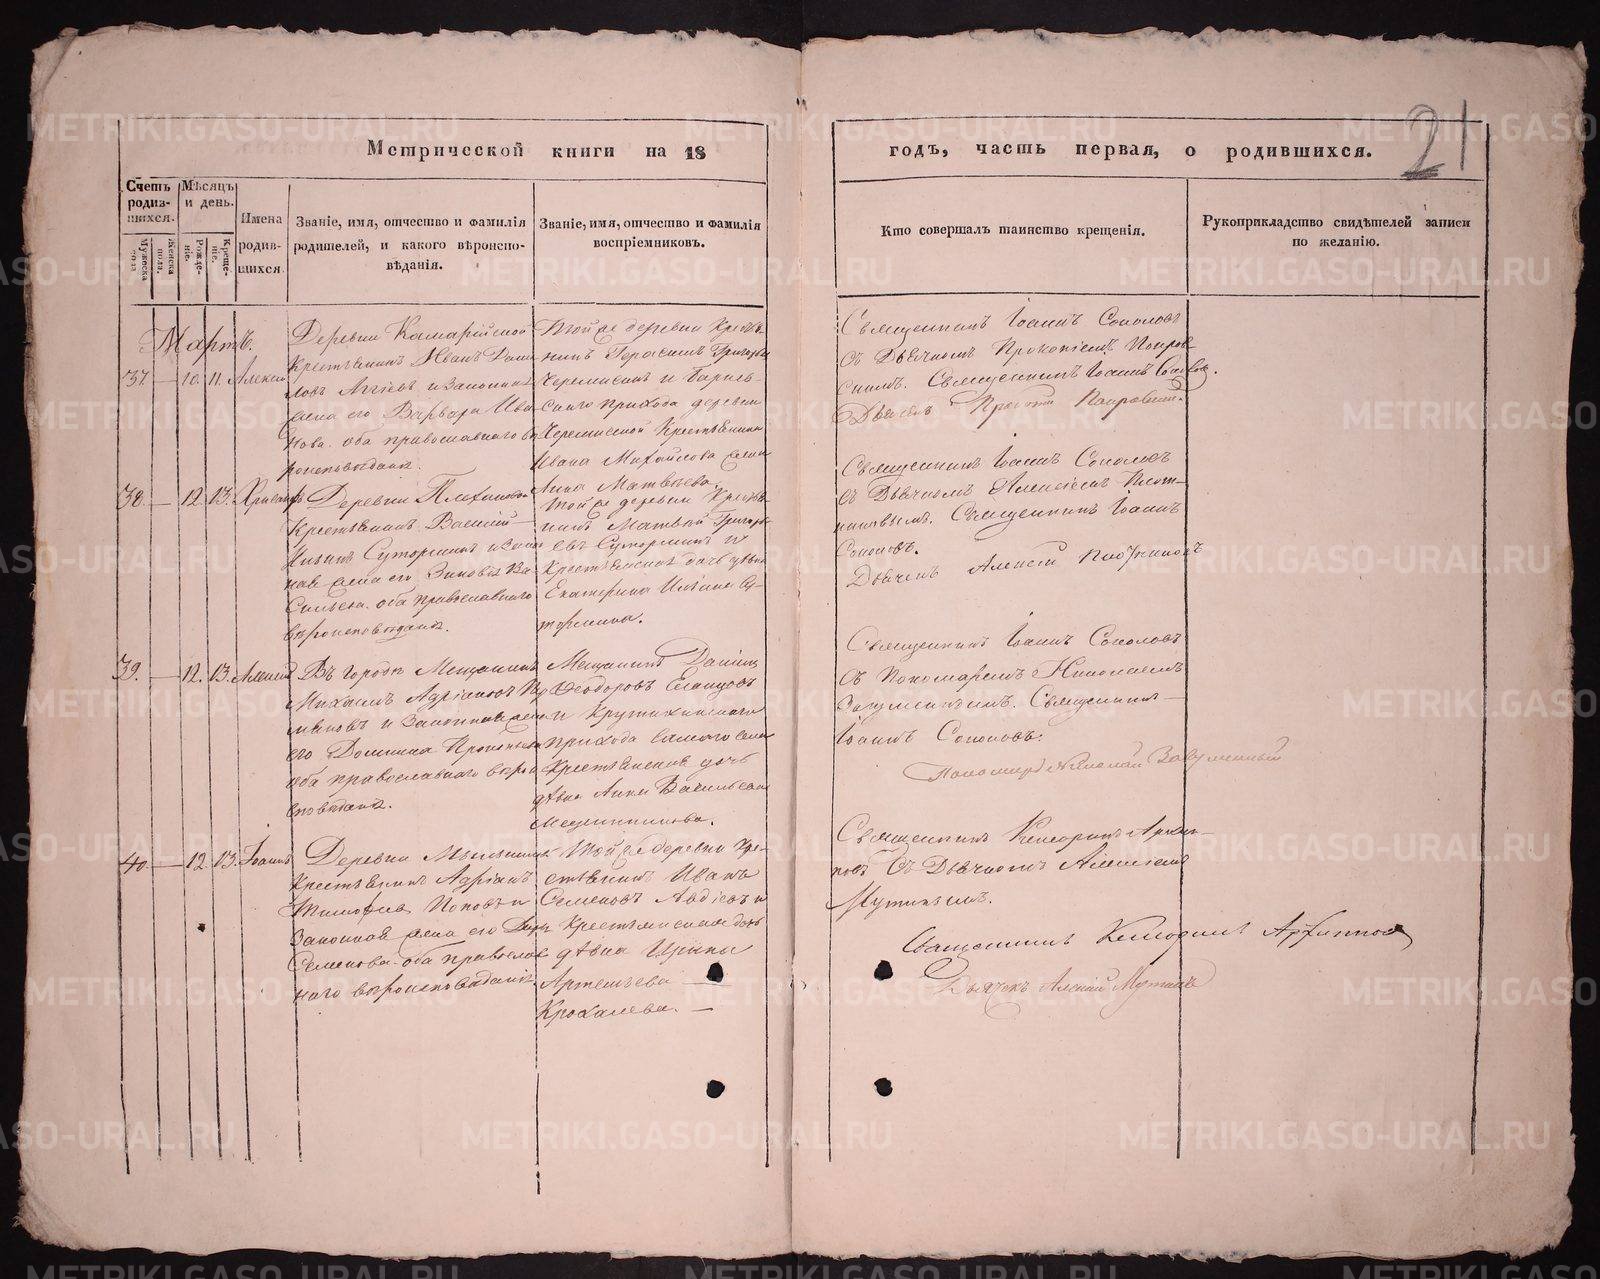 21
Метрической книги на 18
годъ, часть первая, о родившихся.
Счетъ родив-шихся.
Мужеска пола.
Женска пола.
Мѣсяцъ и день.
Рожде-ніе.
Креще-ніе.
Имена родив-шихся.
Званіе, имя, отчество и фамилія
родителей, и какого вѣроиспо-
вѣданія.
Званіе, имя, отчество и фамилія
воспріемниковъ.
Кто совершалъ таинство крещенія.
Рукоприкладство свидѣтелей записи
по желанію.
Мартъ.
37. — 10. 11. Алексій
Деревни
Крестьянинъ Иванъ
и законная
жена его Варвара Ива
нова. оба православнаго вѣ
роисповѣданія.
Той же деревни Крестья
нинъ Герасимъ Григорьевъ
Черемисинъ и
скаго прихода деревни
Черемисской Крестьянина
Ивана Михайлова жена
Анна Матвѣева.
Священникъ Іоаннъ Соколовъ
съ Дьячкомъ Прокопіемъ Покров-
скимъ. Священникъ Іоаннъ Соколовъ.
Дьячекъ
38. — 12. 13.
Деревни
Крестьянинъ Василій
Суторминъ и закон
ная жена его Зиновія Ва
сильева. оба православнаго
вѣроисповѣданія.
Той же деревни Крестья
нинъ Матвей Григорь
евъ Суторминъ и
Крестьянская дочь дѣвица
Екатерина Ильина Су-
тормина.
Священникъ Іоаннъ Соколовъ
съ Дьячкомъ Алексіемъ Плот-
никовымъ. Священникъ Іоаннъ
Соколовъ.
Дьячекъ Алексій Плотниковъ
39. — 12. 13. Алексій
Въ городѣ Мещанинъ
Михаилъ Адріановъ
и законная жена
его Домника Прокопьева
оба православнаго вѣрои
споведанія.
Мещанинъ Даніилъ
Ѳеодоровъ
и Крутихинскаго
прихода самаго села
Крестьянская дочь
дѣвица Анна Васильева
Мещенинова.
Священникъ Іоаннъ Соколовъ
съ Пономаремъ Николаемъ
Священникъ
Іоаннъ Соколовъ.
Пономарь Николай
40. — 12. 13. Іоаннъ
Деревни
Крестьянинъ Адріанъ
Тимофеевъ Поповъ и
Законная жена его
Семенова. оба православ
наго вѣроисповѣданія.
Той же деревни Кре-
стьянинъ Иванъ
Семеновъ Авдіевъ и
Крестьянская дочь
дѣвица Ирина
Артемьева —
Крохалева. —
Священникъ Архип-
повъ съ Дьячкомъ Алексіемъ
Мутинымъ.
Священникъ Архиповъ
Дьячекъ Алексій Мутинъ
METRIKI.GASO-URAL.RU